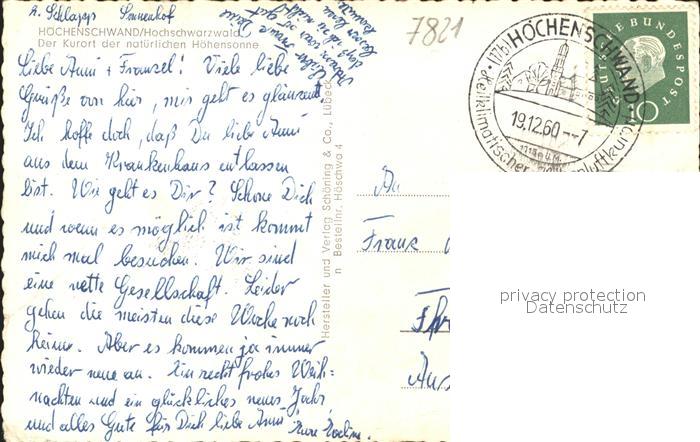 A. Schlapps Sonnenhof
HÖCHENSCHWAND/Hochschwarzwald
Der Kurort der natürlichen Höhensonne
Liebe Anni + Franzel! Viele liebe
Grüße von hier, mir geht es glänzend,
Ich hoffe doch, daß Du liebe Anni
aus dem Krankenhaus entlassen
bist. Wie geht es Dir? Schone Dich
und wenn es möglich ist kommt
mich mal besuchen. Wir sind
eine nette Gesellschaft. Leider
gehen die meisten diese Woche noch
heim. Aber es kommen ja immer
wieder neue an. Ein recht frohes Weih-
nachten und ein glückliches neues Jahr
und alles Gute für Dich liebe Anni
Eure Eveline.
Hersteller und Verlag Schöning & Co., Lübeck
n Bestellnr. Höschwa 4
7821
HÖCHENSCHWAND
19.12.60--7
Heilklimatischer
DEUTSCHE BUNDESPOST
10
An
Frank
privacy protection
Datenschutz